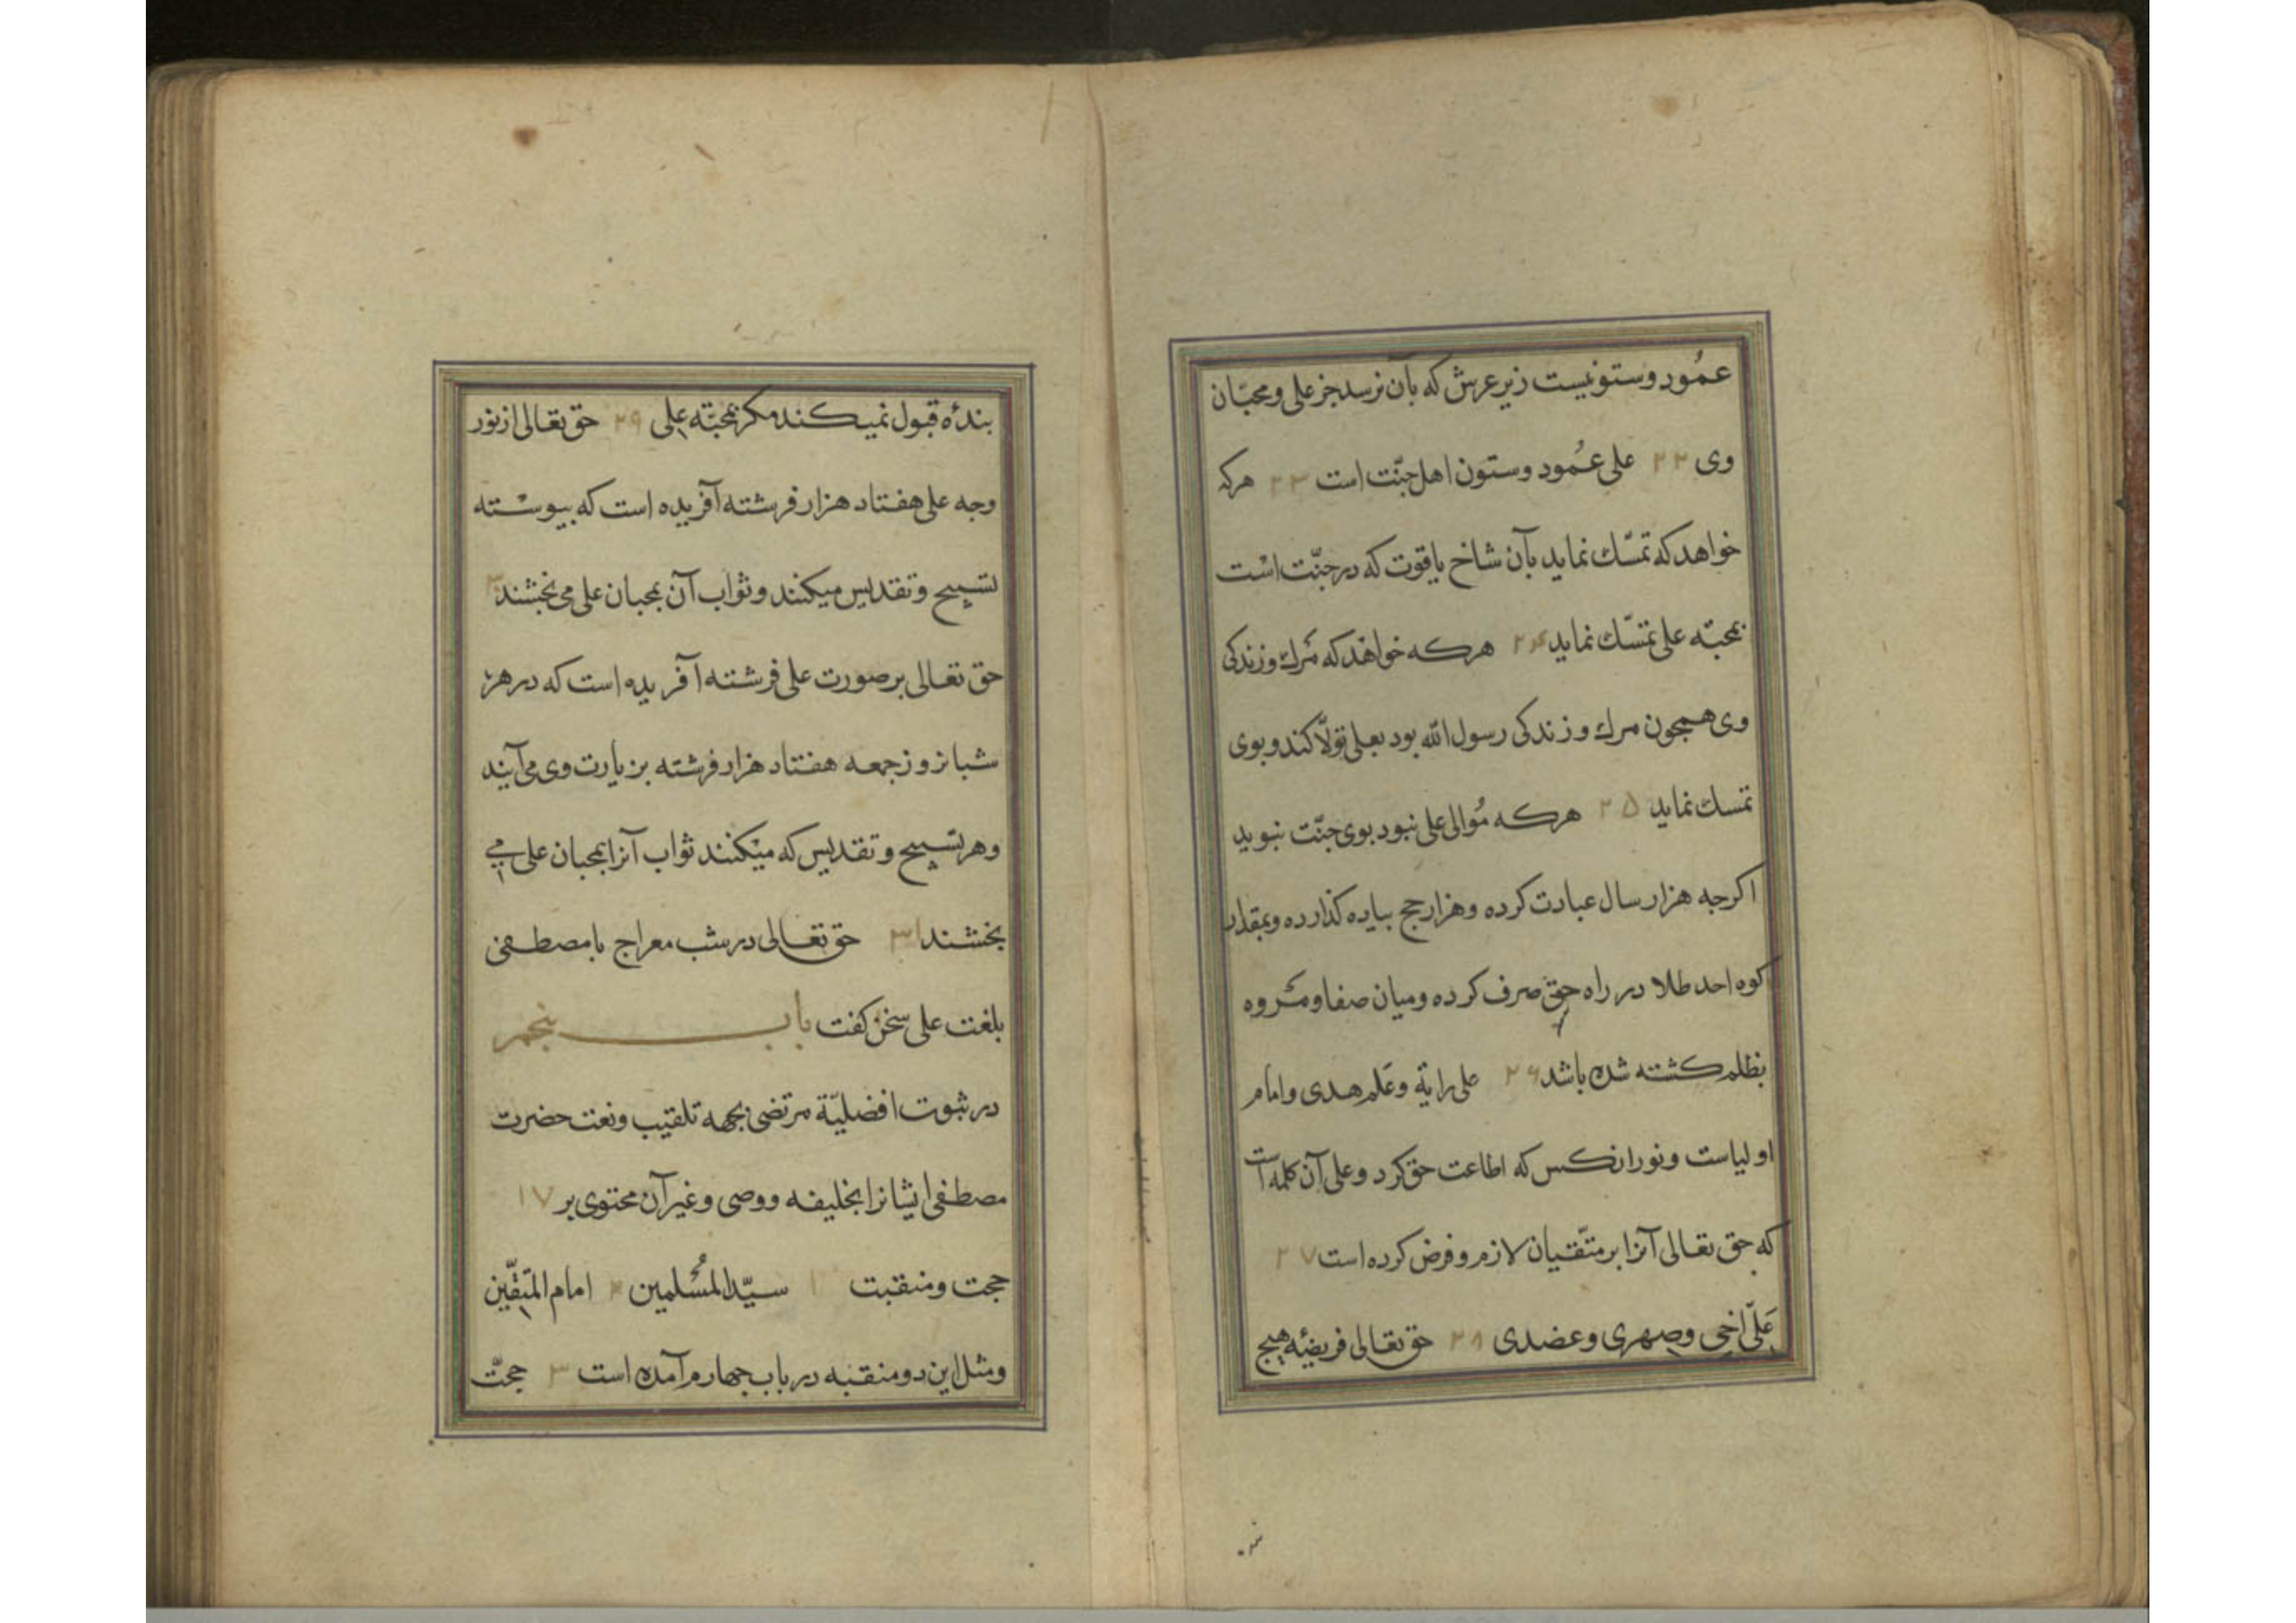 عمُود وستونیست زیر عرش که بآن نرسد جز علی ومحبّان
وی ۲۲ علی عمُود وستون اهل جنّت است ۲۳ هرکه
خواهد که تمسّك نماید بآن شاخ یاقوت که در جنّت است
بمحبّه علی تمسّك نماید ۲۴ هرکه خواهد که مرك وزندکی
وی همچون مرك وزندکی رسول الله بود بعلی تولّا کند وبوی
تمسك نماید ۲۵ هرکه مُوالی علی نبود بوی جنّت نبوید
اکرجه هزار سال عبادت کرده وهزار حج بیاده کذارده وبمقدار
کوه احد طلا در راه حق صرف کرده ومیان صفا ومروه
بظلم کشته شده باشد ۲۶ علی رایة وعَلم هدی وامام
اولیاست ونور انکس که اطاعت حق کرد وعلی آن کلمه است
که حق تعالی آنرا بر متّقیان لازم وفرض کرده است ۲۷
عَلّی اخی وصهری وعضدی ۲۸ حق تعالی فریضۀ هیچ
بندۀ قبول نمیکند مکر بمحبّة علی ۲۹ حق تعالی از نور
وجه علی هفتاد هزار فرشته آفریده است که بیوسته
تسبیح وتقدیس میکنند وثواب آن بمحبان علی می بخشند ۳۰
حق تعالی بر صورت علی فرشته آفریده است که در هر
شبانروز جمعه هفتاد هزار فرشته بزیارت وی می آیند
وهر تسبیح وتقدیس که میکنند ثواب آنرا بمحبان علی می
بخشند ۳۱ حق تعالی در شب معراج با مصطفی
بلغت علی سخن کفت باب پنجم
در ثبوت افضلیّة مرتضی بجهه تلقیب ونعت حضرت
مصطفی ایشانرا بخلیفه ووصی وغیر آن محتوی بر ۱۷
حجت ومنقبت ۱ سیّد المُسْلمین ۲ امام المتّقین
ومثل این دو منقبه در باب جهارم آمده است ۳ حجّت